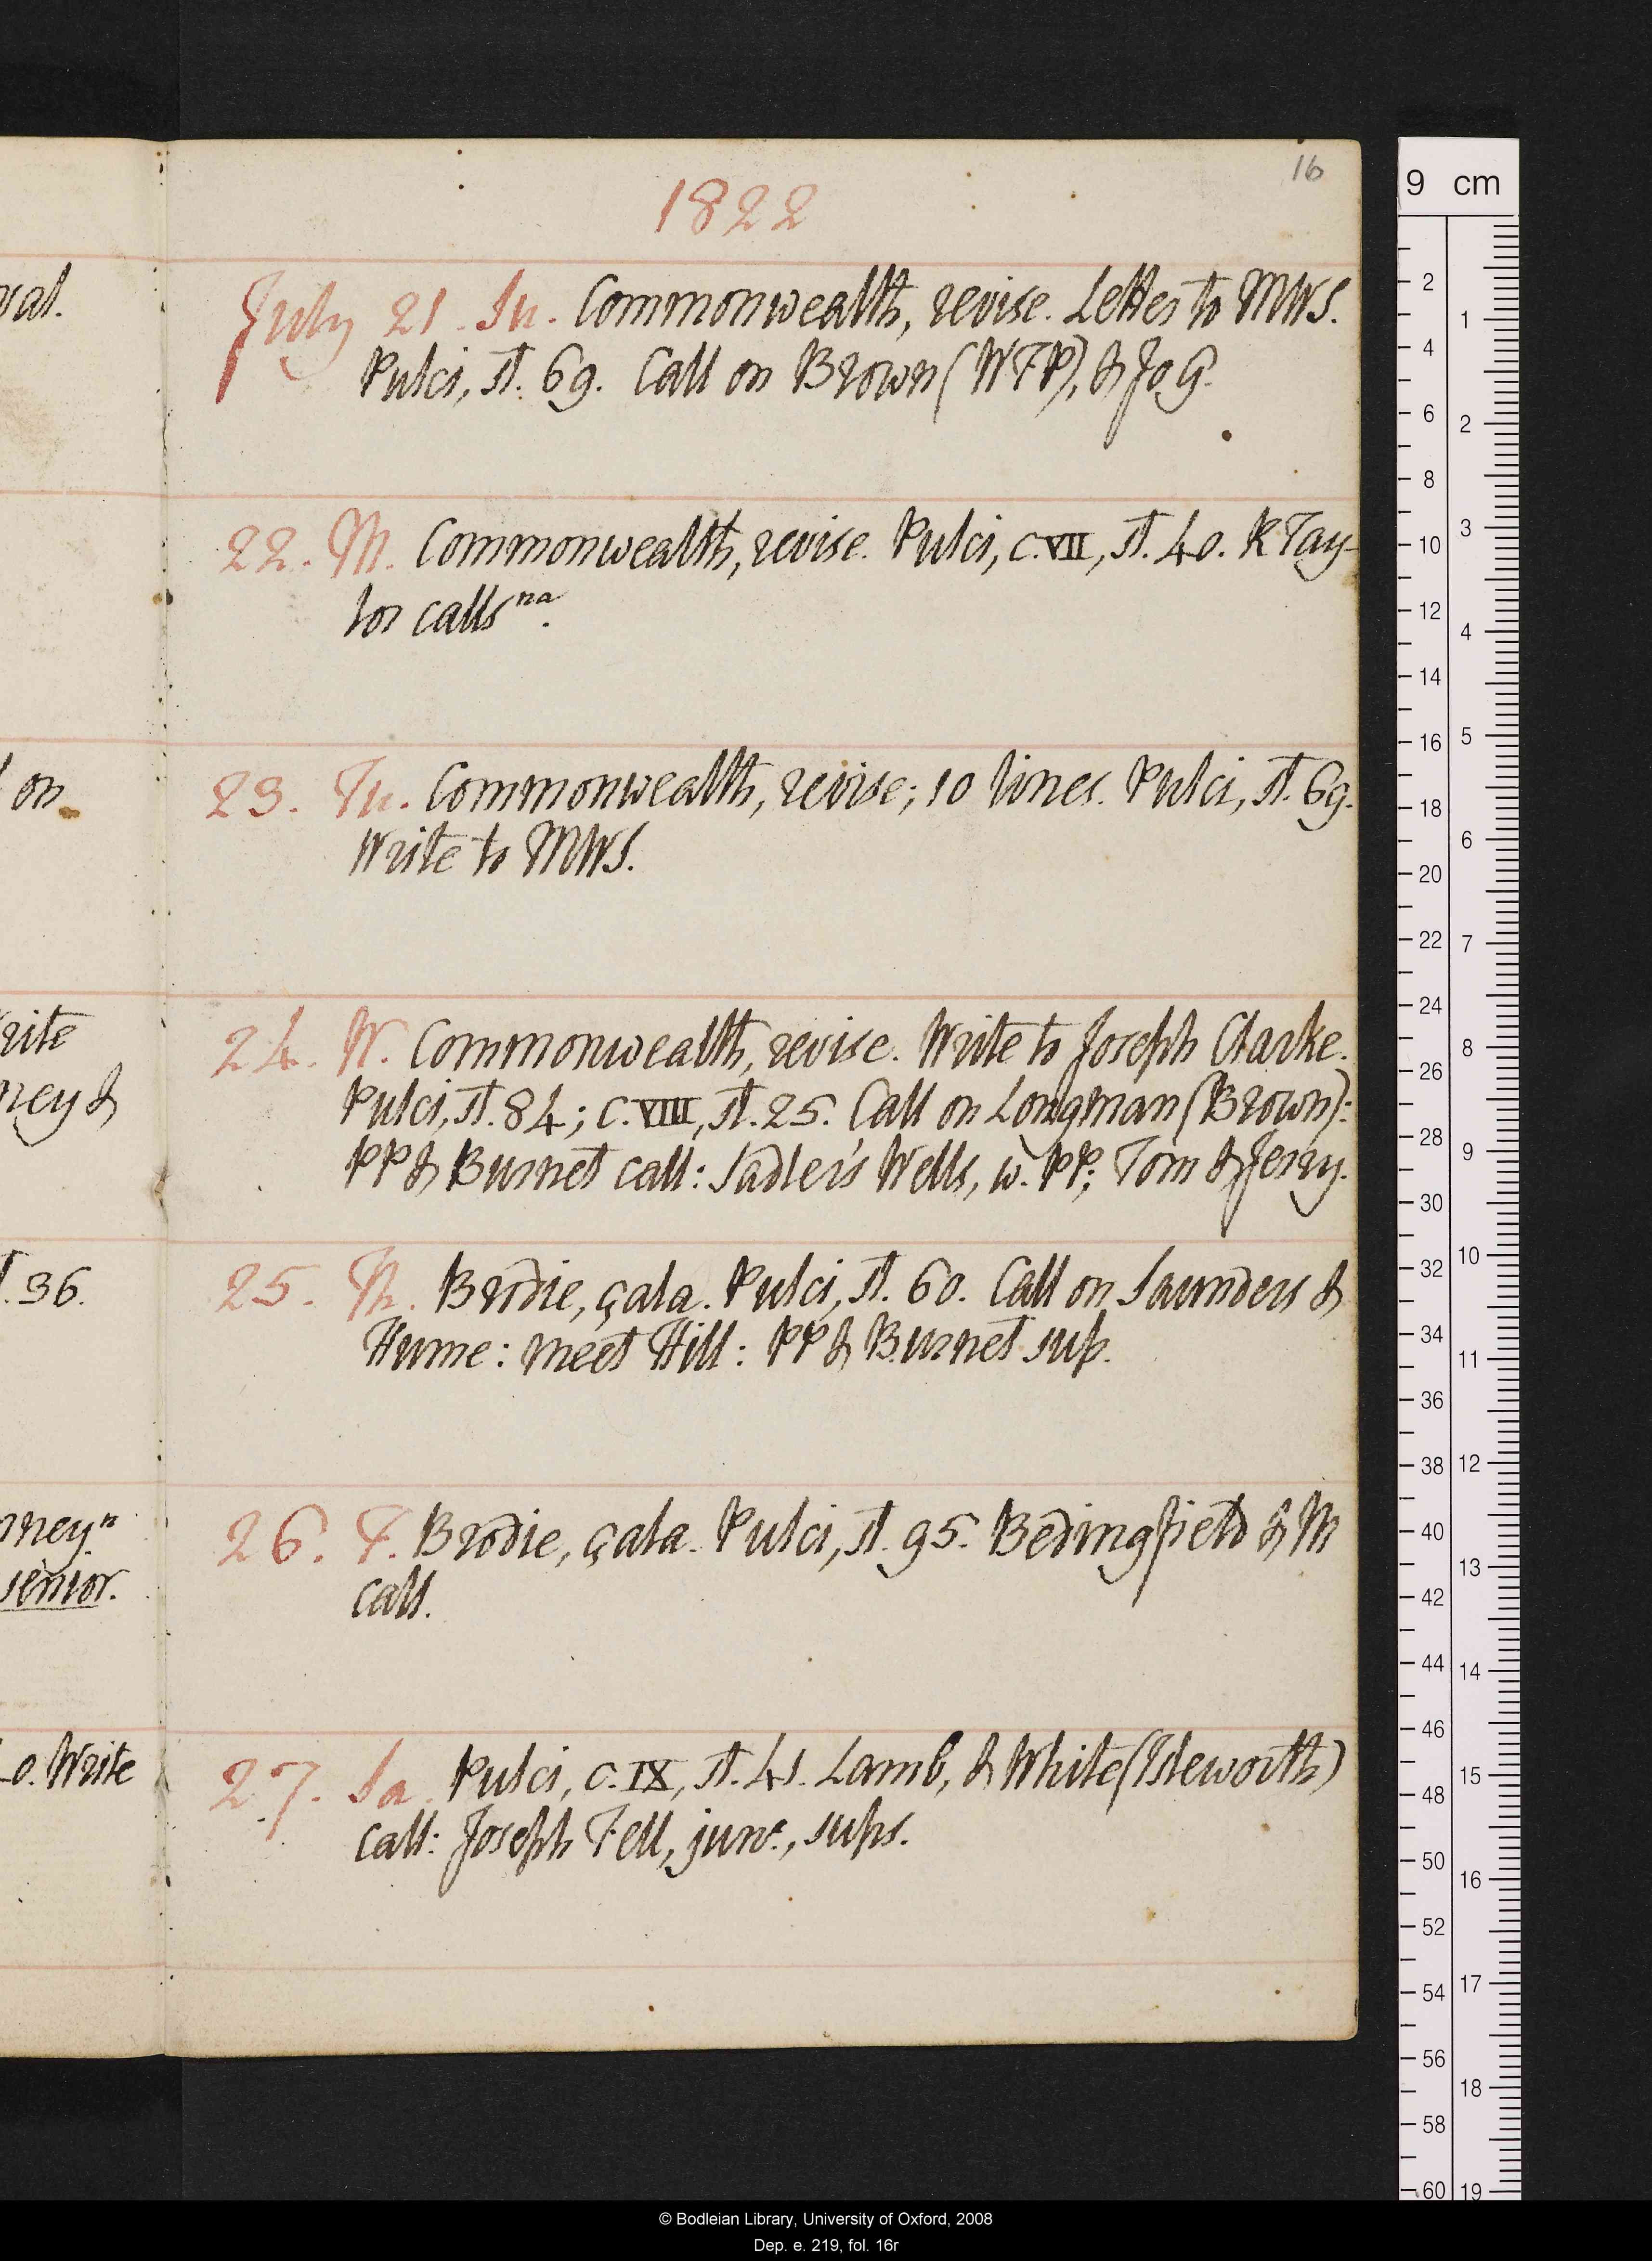 16
1822
July 21. Su. Commonwealth, revise. Letter to MWS.
Pulci, st. 69. Call on Brown (WFP), & Jo G.
22. M. Commonwealth, revise. Pulci, c. VII, st. 40. R Tay-
lor calls na.
23. Tu. Commonwealth, revise; 10 lines. Pulci, st. 69.
Write to MWS.
24. W. Commonwealth, revise. Write to Joseph Clarke.
Pulci, st. 84; c. VIII, st. 25. Call on Longman (Brown):
PP & Burnet call: Sadler's Wells, w. PP; Tom & Jerry.
25. Th. Brodie, çala. Pulci, st. 60. Call on Saunders &
Hume: meet Hill: PP & Burnet sup.
26. F. Brodie, çala. Pulci, st. 95. Bedingfield & M
call.
27. Sa. Pulci, c. IX, st. 41. Lamb, & White (Isleworth)
call: Joseph Fell, junr., sups.
on
rite
ney &
36.
nney n
senior.
o. Write
9 cm
2
4
6
8
10
12
14
16
18
20
22
24
26
28
30
32
34
36
38
40
42
44
46
48
50
52
54
56
58
60
1
2
3
4
5
6
7
8
9
10
11
12
13
14
15
16
17
18
19
© Bodleian Library, University of Oxford, 2008
Dep. e. 219, fol. 16r